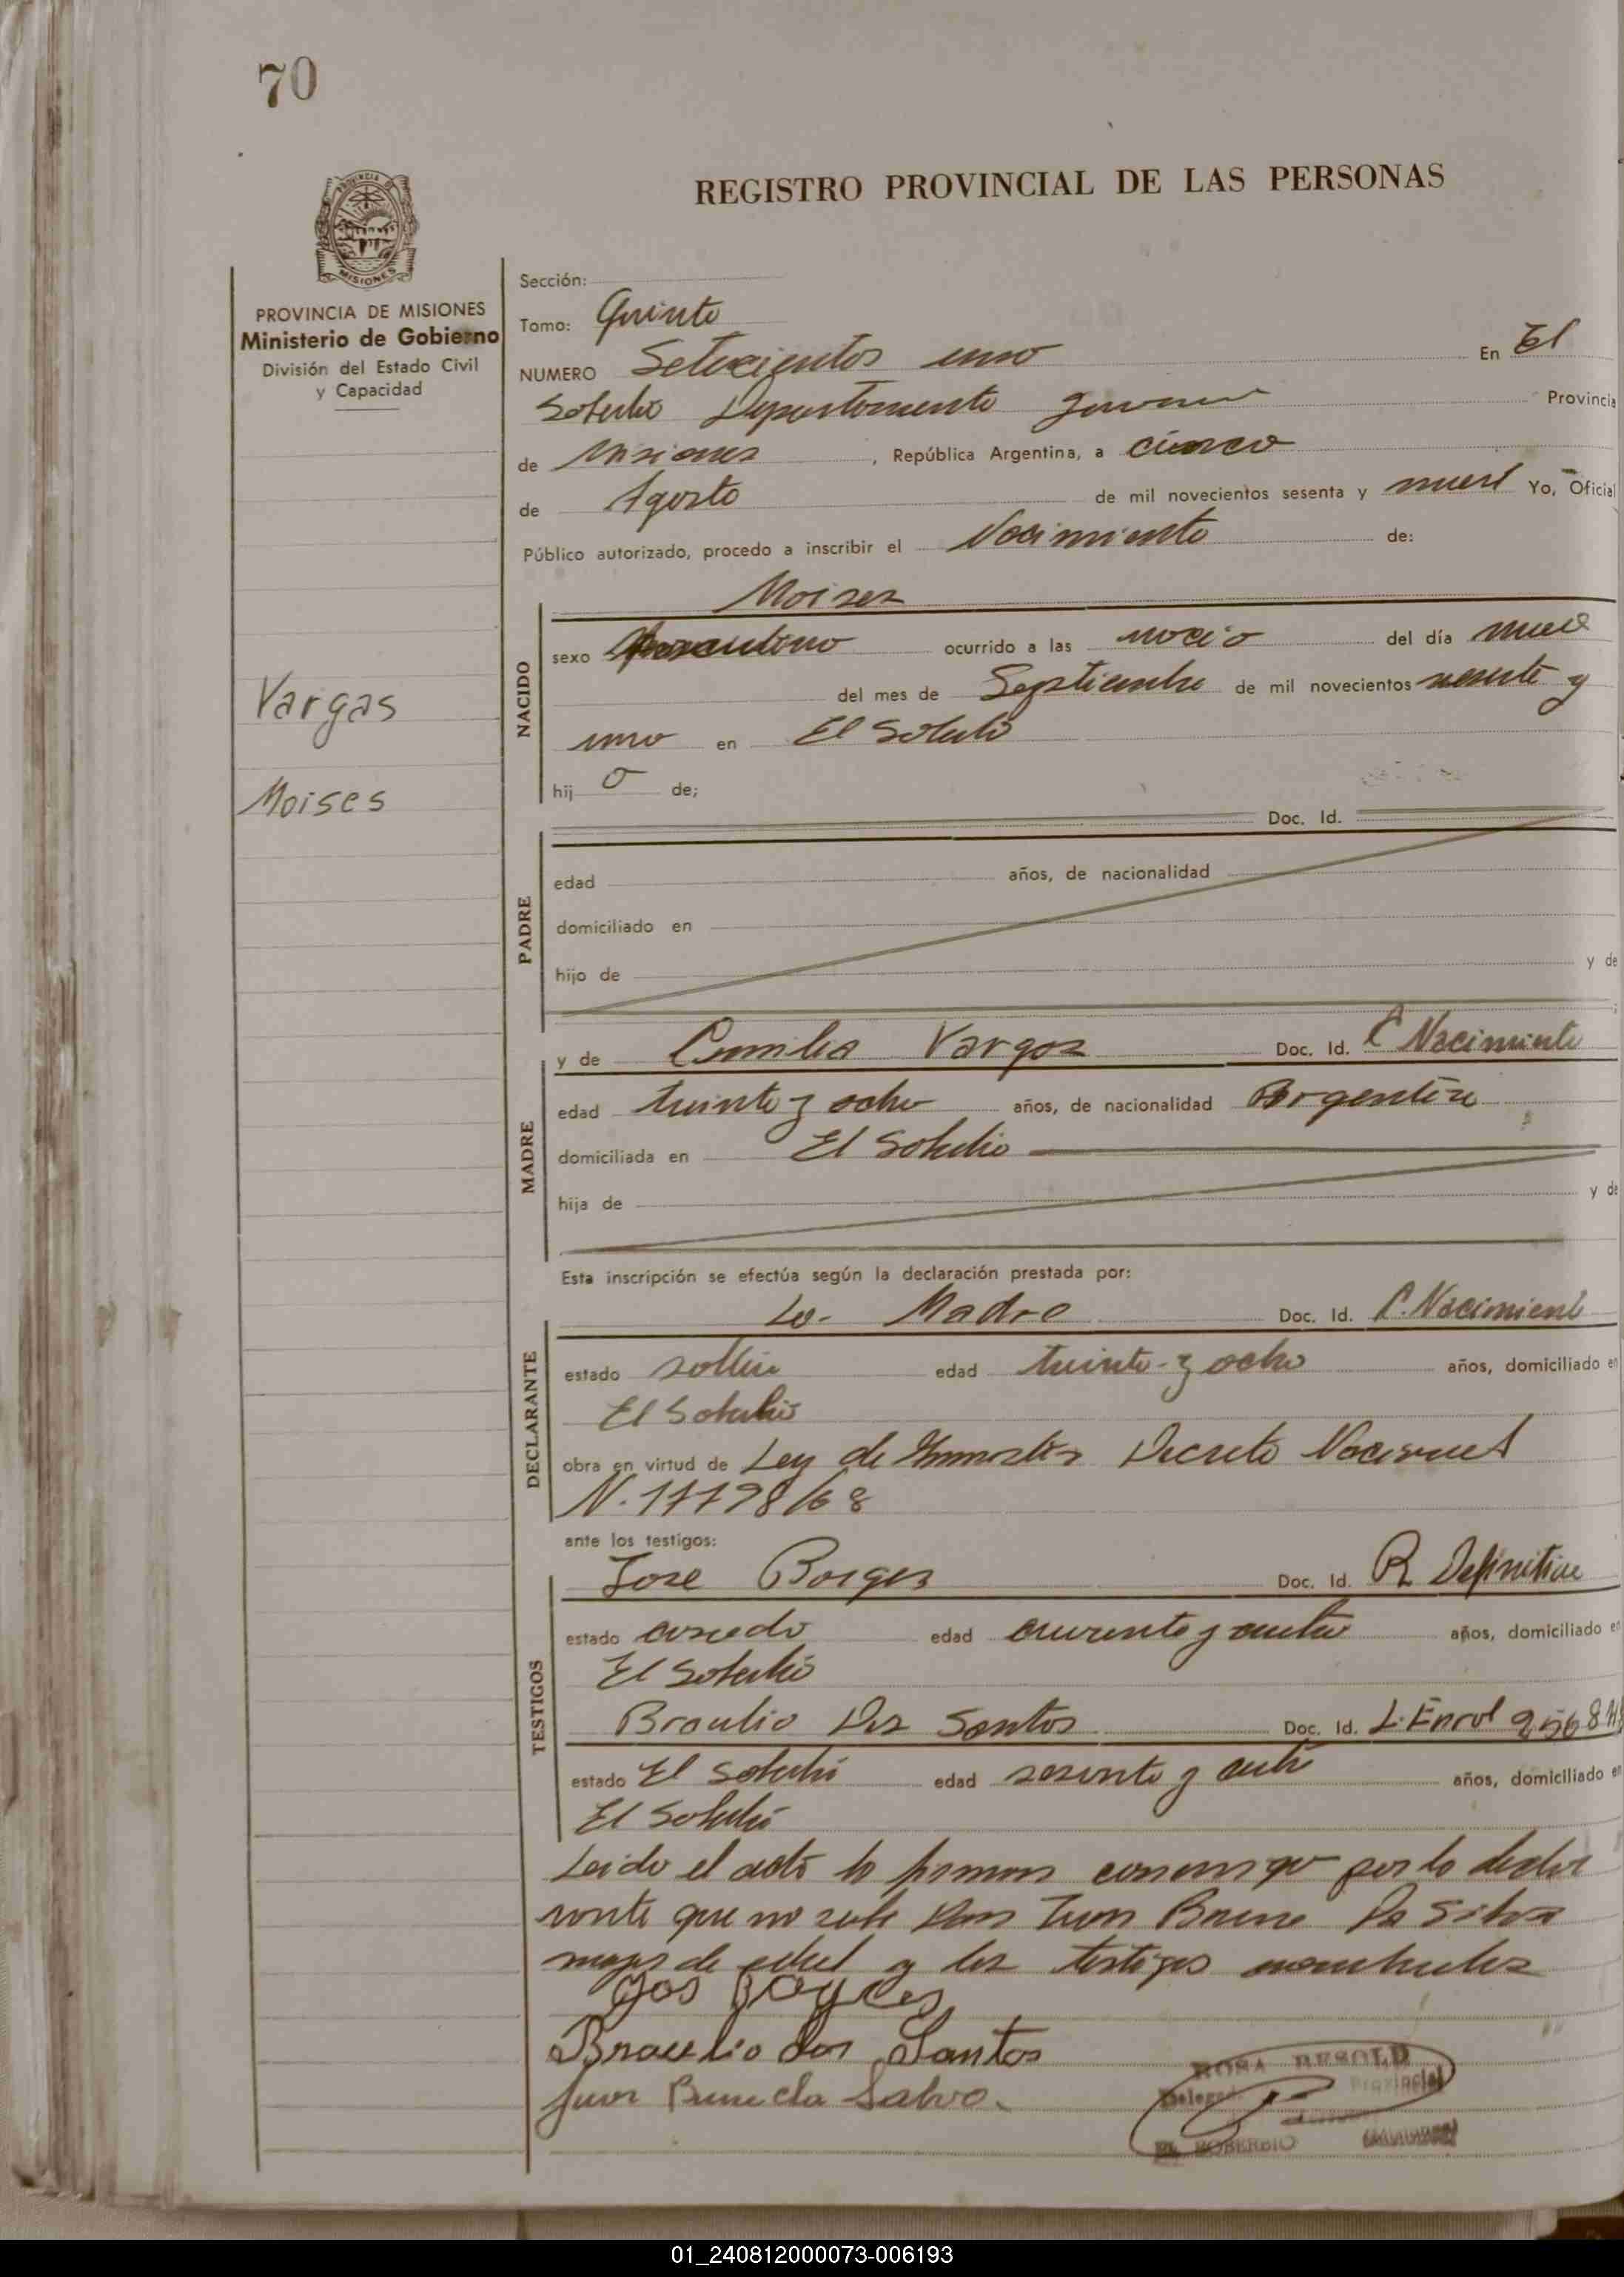 70
REGISTRO PROVINCIAL DE LAS PERSONAS
PROVINCIA DE
MISIONES
PROVINCIA DE MISIONES
Ministerio de Gobierno
División del Estado Civil
y Capacidad
Vargas
Moises
Sección:
Tomo: Quinto
NUMERO Setecientos uno En El
Soberbio Departamento Provincia
de Misiones , República Argentina, a cinco
de Agosto de mil novecientos sesenta y nueve Yo, Oficial
Público autorizado, procedo a inscribir el Nacimiento de:
NACIDO
Moises
sexo masculino ocurrido a las del día nueve
del mes de Septiembre de mil novecientos sesenta y
uno en El Soberbio
hij o de;
PADRE
Doc. Id.
edad años, de nacionalidad
domiciliado en
hijo de y de
MADRE
y de Vargas Doc. Id. C Nacimiento
edad treinta y ocho años, de nacionalidad Argentina
domiciliada en El Soberbio
hija de y de
Esta inscripción se efectúa según la declaración prestada por:
DECLARANTE
La Madre Doc. Id. C. Nacimient
estado soltera edad treinta y ocho años, domiciliado en
El Soberbio
obra en virtud de Ley de Amnistia Decreto Nacional
N. 17798/68
ante los testigos:
TESTIGOS
Jose Borges Doc. Id. R Definitiva
estado casado edad cuarenta y años, domiciliado en
El Soberbio
Braulio Dos Santos Doc. Id. L. Enrol
estado El Soberbio edad sesenta y años, domiciliado en
El Soberbio
Leido el acta la firman conmigo por la decla
rante que no sabe Don Juan Da Silva
mayor de edad y los testigos nombrados
Braulio dos Santos
ROSA BESOLD
Provincial
EL SOBERBIO
01_240812000073-006193